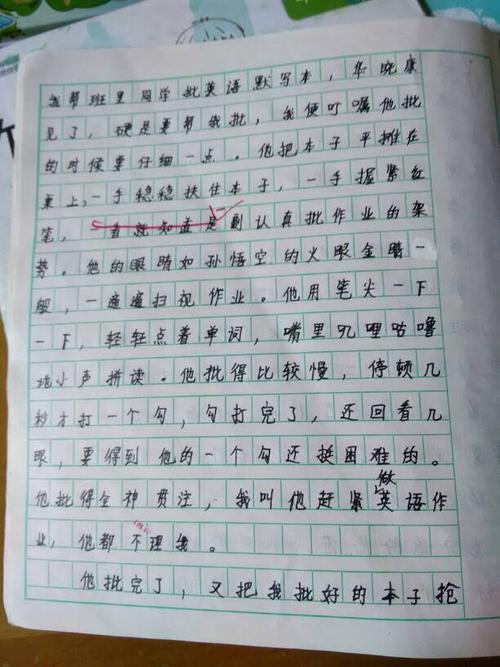 我帮班里同学批英语默写本，华晓康
见了，硬是要帮我批，我便叮嘱他批
的时候要仔细一点。他把本子平摊在
桌上，一手稳稳扶住本子，一手握紧红
笔，一看就知道是副认真批作业的架
势。他的眼睛如孙悟空的火眼金睛一
般，一遍遍扫视作业。他用笔尖一下
一下，轻轻点着单词，嘴里叽哩咕噜
地小声拼读。他批得比较慢，停顿几
秒才打一个勾，勾打完了，还回看几
眼，要得到他的一个勾还挺困难的。
他批得全神贯注，我叫他赶紧做英语作
业，他都不理我。
他批完了，又把我批好的本子抢